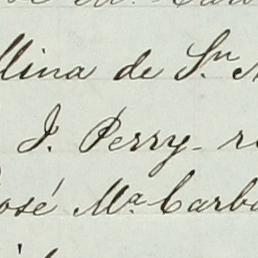 llina de Sn.
J. Perry - r
José Ma. Carb